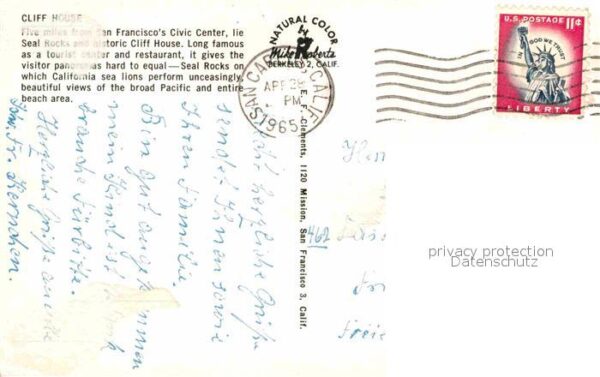 CLIFF HOUSE
Five miles from San Francisco's Civic Center, lie
Seal Rocks and historic Cliff House. Long famous
as a tourist center and restaurant, it gives the
visitor panoramas hard to equal — Seal Rocks on
which California sea lions perform unceasingly,
beautiful views of the broad Pacific and entire
beach area.
NATURAL COLOR
Mike Roberts
BERKELEY 2, CALIF.
SAN CALIF.
APR 29
PM
1965
E. F. Clements, 1120 Mission, San Francisco 3, Calif.
U.S. POSTAGE 11¢
IN GOD WE TRUST
LIBERTY
herzliche Grüße
sendet Ihnen sowie
Ihrer Familie.
Bin gut angekommen
mein Kind ist
brauche Fürbitte.
Herzliche Grüße
Herrn
462
Frei
privacy protection
Datenschutz